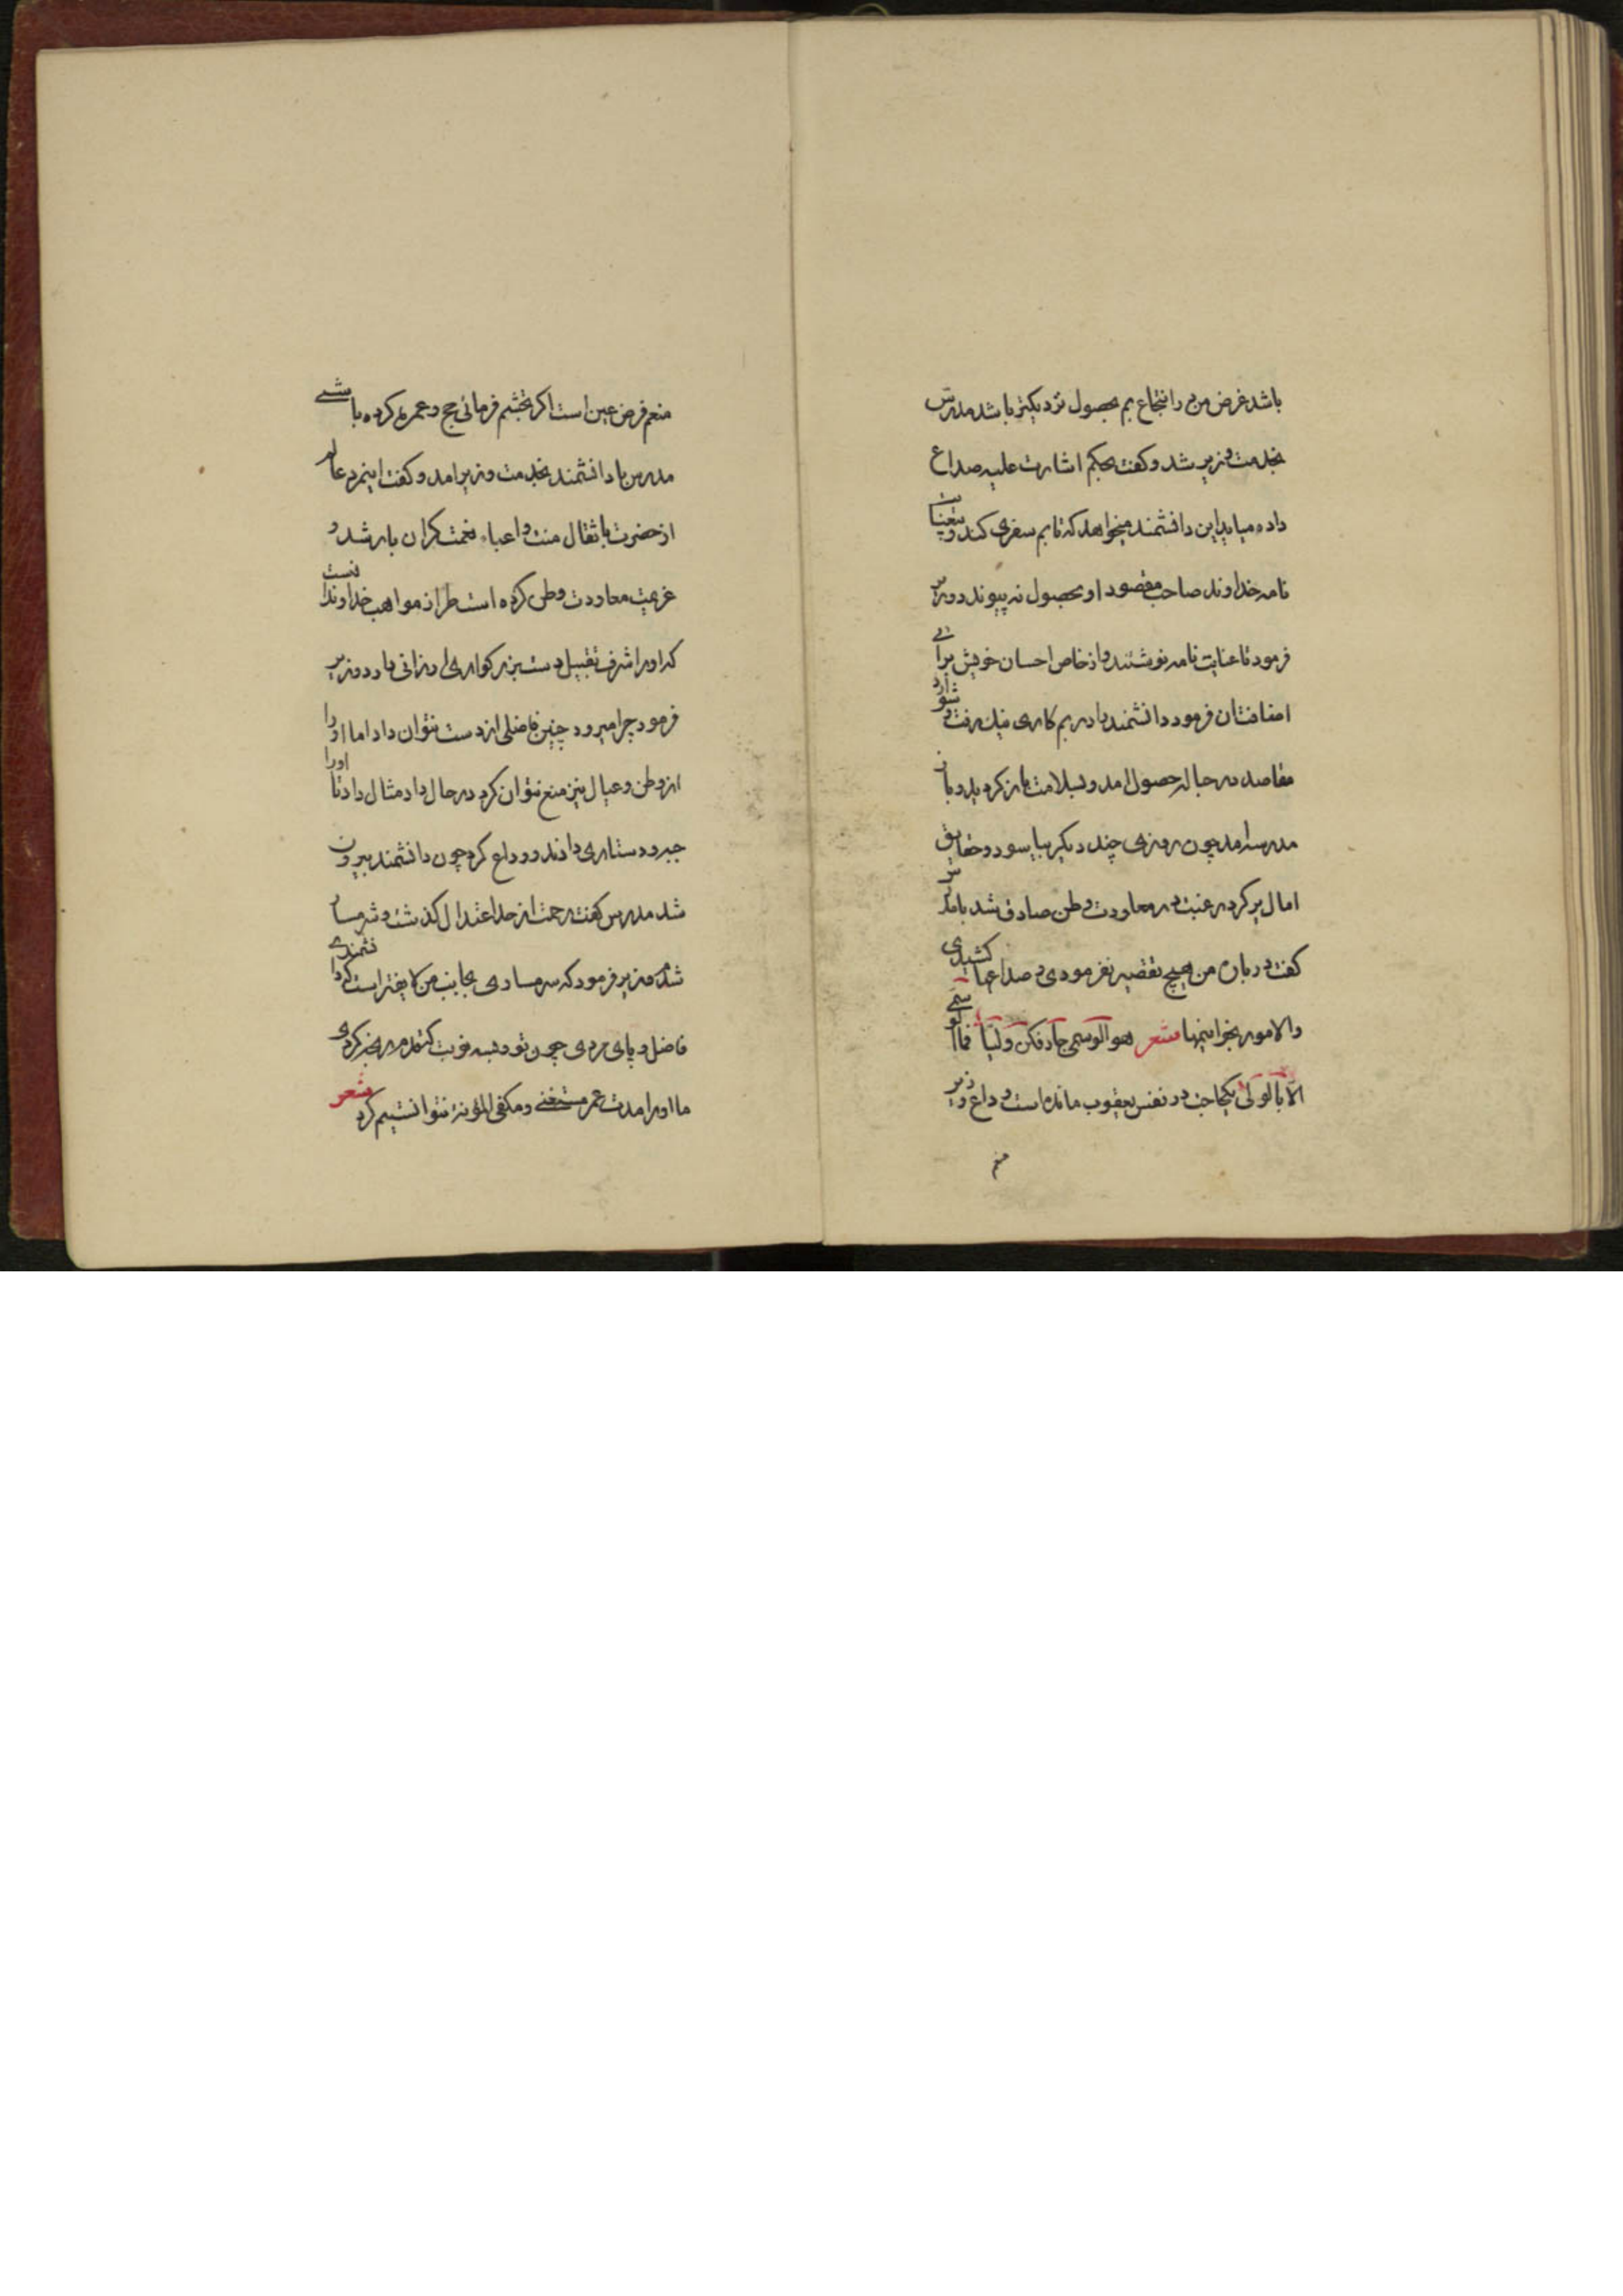 باشد غرض من در انتجاع بم بحصول نزدیکتر باشد مدرس
بخدمت وزیر شد و کفت بحکم اشارت علیه صداع
داده میاید این دانشمند میخواهد که تا بم سفری کند و بیعنایت
نامه خداوند صاحب مقصود او بحصول نه پیوندد وزیر
فرمود تا عنایت نامه نوشتند و از خاص احسان خویش برای
فرمود دانشمند با در بم کاری نیک رفت و
مقاصد در حباله حصول امد و بسلامت باز کردید و باز
مدرسه امد چون روزی چند دیکر بیاسود و حقایق
امال پر کرد رغبت در معاودت وطن صادق شد با مدرس
کفت در باره من هیچ تقصیر نفرمودی و صداعها کشیدی
والامور بخواتیمها شعر هو الوسمی جاد فکن ولیا فما الوسمی
الا بالولی یکحاجت در نفس یعقوب مانده است وداع وزیر
منعم
منعم فرض عین است اکر تجشم فرمائی حج و عمره کرده باشی
مدرس با دانشمند بخدمت وزیر امد و کفت اینمرد عالم
از حضرت با ثقال منت و اعباء نعمت کران بار شد و
عزیمت معاودت وطن کرده است طراز مواهب خداوند انست
که او را شرف تقبیل دست بزرکواری ارزانی دارد وزیر
فرمود چرا میرود چنین فاضلی از دست نتوان داد اما او را
از وطن و عیال نیز منع نتوان کرد در حال داد مثال داد تا او را
جبه و دستاری دادند و وداع کرد چون دانشمند بیرون
شد مدرس کفت زحمت از حد اعتدال کذشت و شرمسار
شدم وزیر فرمود که شرمساری بجانب من لایقتر است که دانشمندی
فاضل و پای مردی چون تو و بسه نوبت رنجه کردی
ما او را مدت عمر مستغنی و مکفی المؤنه نتوانستیم کرد شعر